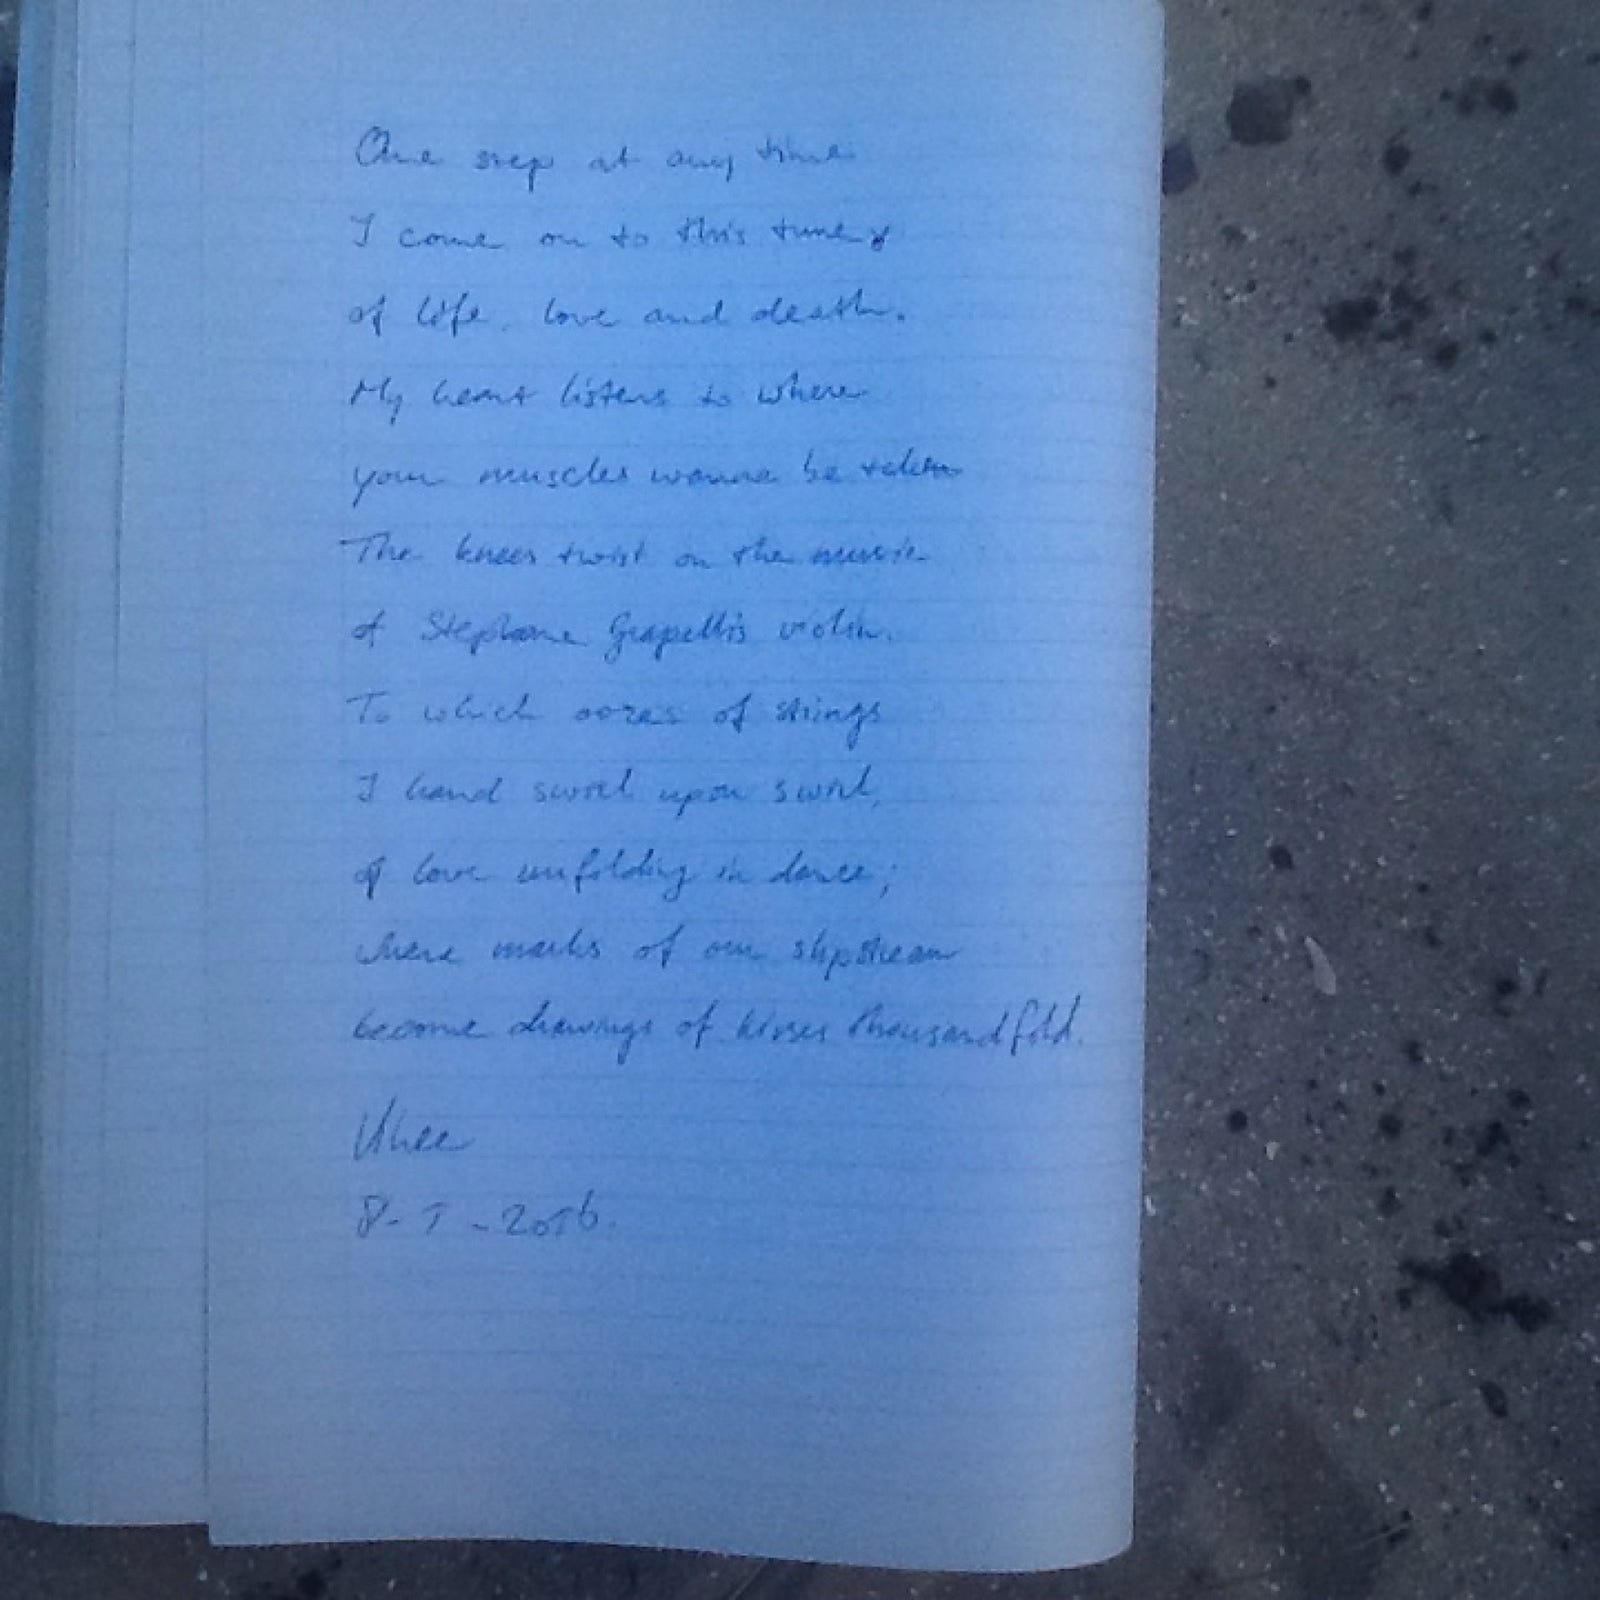 One step at any time
I come on to this tune,
of life, love and death.
My heart listens to where
your muscles wanna be taken
The knees twist on the music
of Stephane Grapellis violin.
To which oozes of strings
I hand swirl upon swirl,
of love unfolding in dance;
where marks of our slipstream
become drawings of kisses thousandfold.
8- 1 -2016.